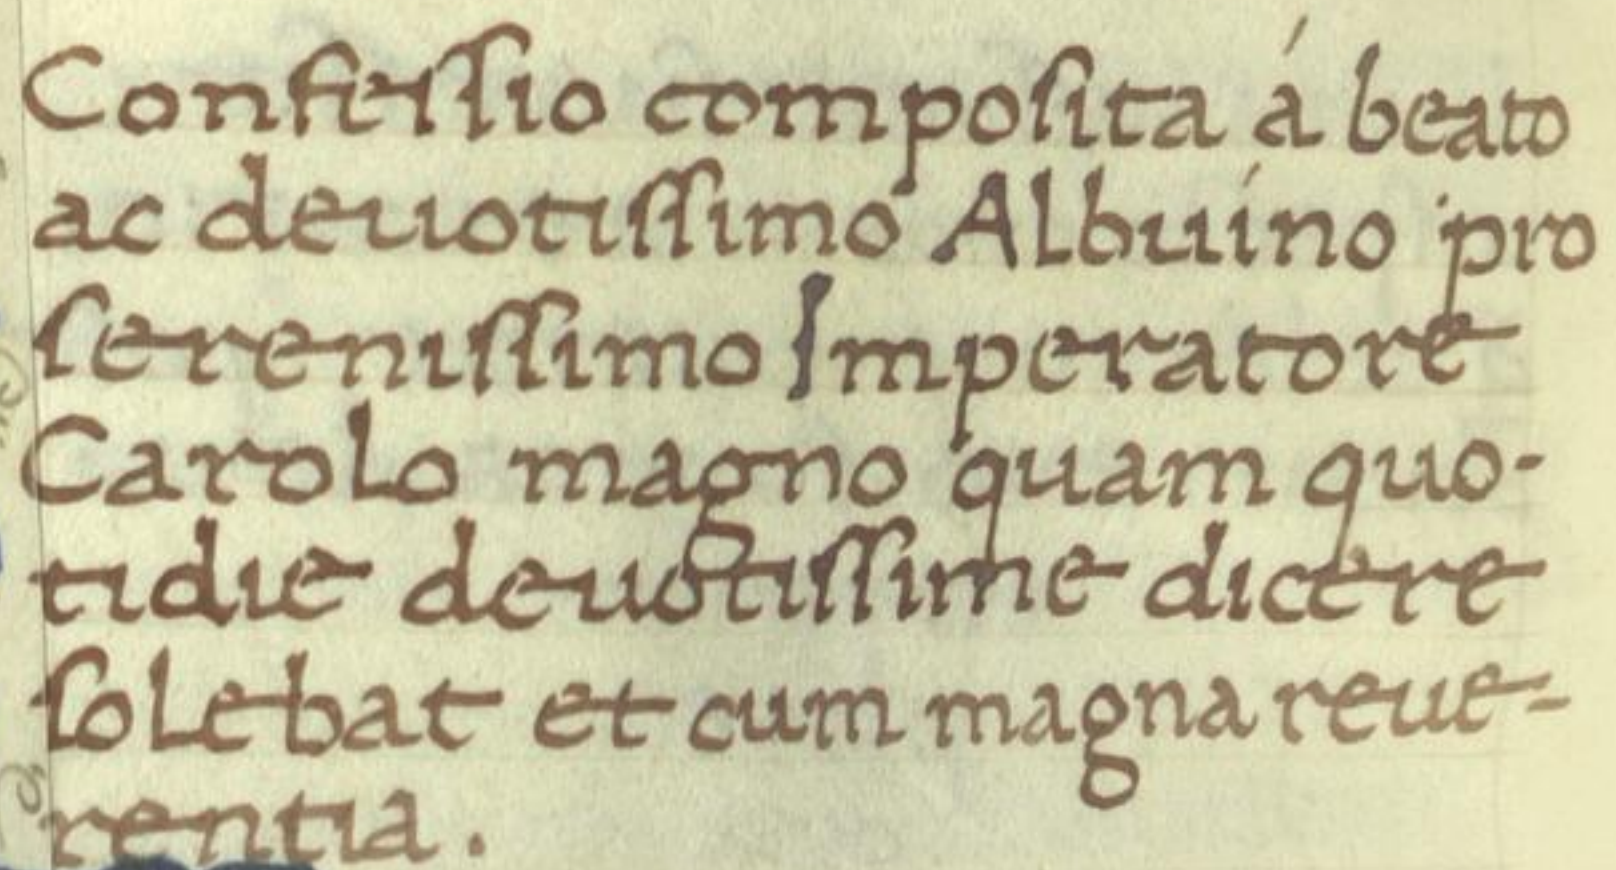 Confessio composita á beato
ac deuotissimo Albuino pro
serenissimo Imperatore
Carolo magno quam quo-
tidie deuotissime dicere
solebat et cum magna reue-
rentia.